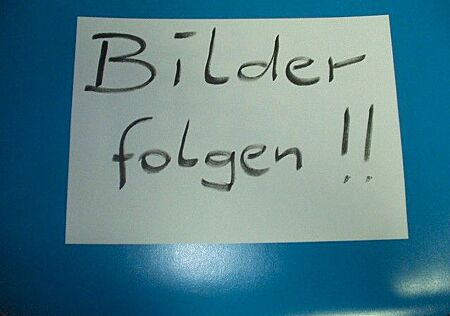 Bilder
folgen !!